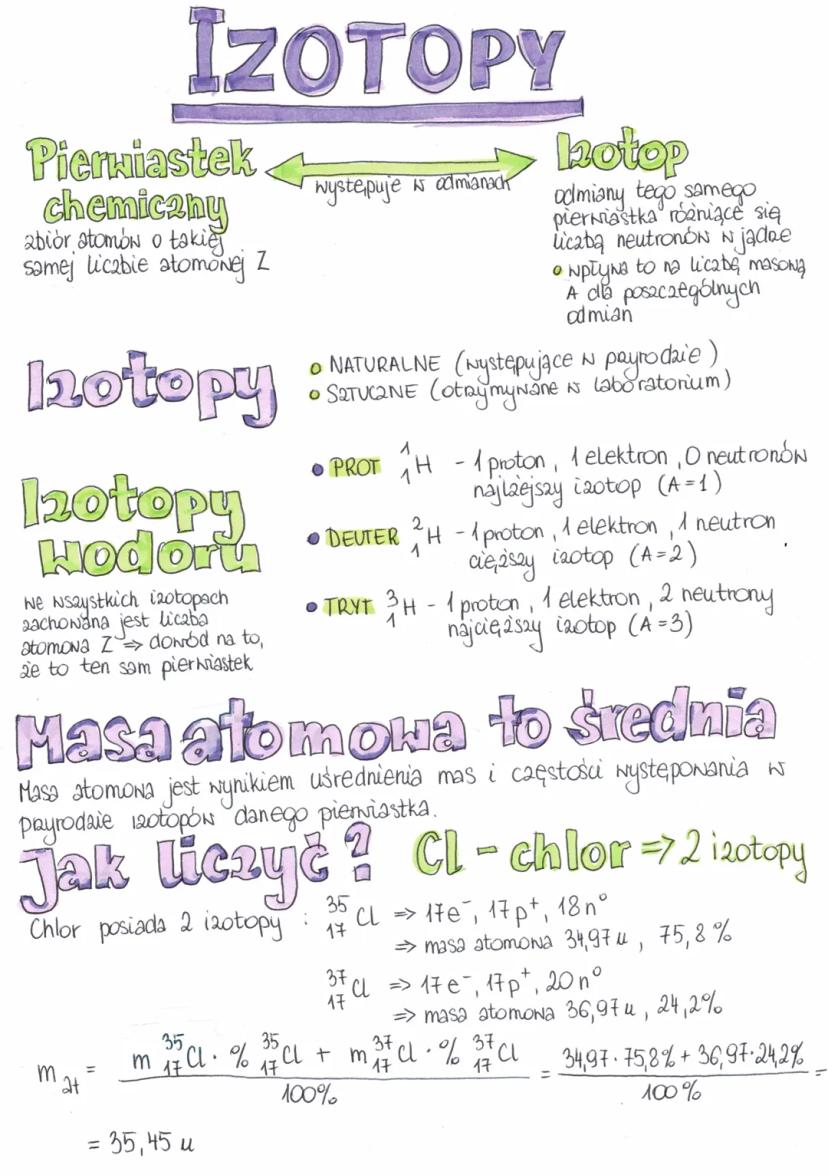 IZOTOPY
Pierwiastek
chemiczny
zbiór atomów o takiej
samej liczbie atomowej Z
występuje w odmianach
Izotop
odmiany tego samego
pierwiastka różniące się
liczbą neutronów w jądze
• wpływa to na liczbę masową
A dla poszczególnych
odmian
Izotopy
• NATURALNE (występujące w przyrodzie)
• SZTUCZNE (otrzymywane w laboratorium)
Izotopy
wodoru
we wszystkich izotopach
zachowana jest liczba
atomowa Z ⇒ dowód na to,
że to ten sam pierwiastek
• PROT ¹₁H - 1 proton, 1 elektron, 0 neutronów
najlżejszy izotop (A=1)
• DEUTER ²₁H - 1 proton, 1 elektron, 1 neutron
cięższy izotop (A=2)
• TRYT ³₁H - 1 proton, 1 elektron, 2 neutrony
najcięższy izotop (A=3)
Masa atomowa to średnia
Masa atomowa jest wynikiem uśrednienia mas i częstości występowania w
przyrodzie izotopów danego pierwiastka.
Jak liczyć? Cl - chlor ⇒ 2 izotopy
Chlor posiada 2 izotopy : ³⁵₁₇Cl ⇒ 17e⁻, 17p⁺, 18n⁰
⇒ masa atomowa 34,97 u, 75,8%
³⁷₁₇Cl ⇒ 17e⁻, 17p⁺, 20n⁰
⇒ masa atomowa 36,97 u, 24,2%
m at = m ³⁵₁₇Cl · % ³⁵₁₇Cl + m ³⁷₁₇Cl · % ³⁷₁₇Cl / 100% = 34,97 · 75,8% + 36,97 · 24,2% / 100% =
= 35,45 u